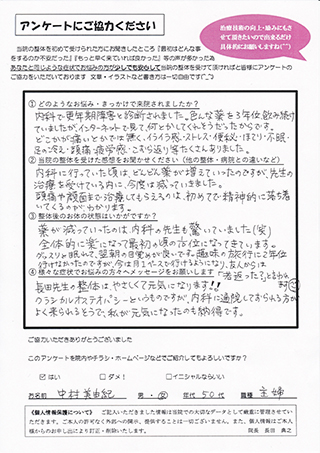 アンケートにご協力ください
治療技術の向上・励みにもさせて頂きたいので出来るだけ具体的にお願いしますね(^^)
当院の整体を初めて受けられた方にお聞きしたところ『最初はどんな事をするのか不安だった』『もっと早く来ていれば良かった』等の声が多かった為
あなたと同じような症状でお悩みの方が少しでも安心して当院の整体を受けて頂ければと皆様にアンケートのご協力をいただいております 文章・イラストなど書き方は一切自由です(^_^)
①どのようなお悩み・きっかけで来院されましたか？
内科で更年期障害と診断されました。色んな薬を3年位飲み続け
ていましたがインターネットで見て、何とかしてくれそうだったからです。
どこかが痛いとかでは無く、イライラ感・ストレス・便秘・ほてり・不眠・
足の冷え・頭痛・疲労感・こむら返り等たくさんありました。
②当院の整体を受けた感想をお聞かせください（他の整体・病院との違いなど）
内科に行っていた頃は、どんどん薬が増えていったのですが、先生の
治療を受けている内に、今度は減っていきました。
頭痛や顔面まで治療してもらえるのは、初めてで精神的に落ち着
いてくるのがわかります。
③整体後のお体の状態はいかがですか？
薬が減っていったのは、内科の先生も驚いていました(笑)
全体的に楽になって最初の頃の1/3位になってきています。
グッスリと眠れて、翌朝の目覚めが良いです。趣味の旅行に2年位
行けなかったのですが、今は月1ペースで行けるようになり、友人からは
④様々な症状でお悩みの方々へメッセージをお願いします
「若返った？」と言われます
長田先生の整体は、やさしくて元気になります!!
クラシカルオステオパシーというものですが、内科に通院しておられる方が
よく来られるそうで、私が元気になったのも納得です。
ご協力いただきありがとうございました
このアンケートを院内やチラシ・ホームページなどでご紹介してもよろしいですか？
☑はい □ダメ！ □イニシャルならいい
お名前 中村美由紀 男・女 年代 50代 職種 主婦
《個人情報保護について》 ご記入いただきました情報は当院での大切なデータとして厳重に管理させていただきます。ご本人の許可なく外部への開示、提供することは一切ございません。また、個人情報はご本人様からのお申し出により訂正・削除いたします。 院長 長田 真之